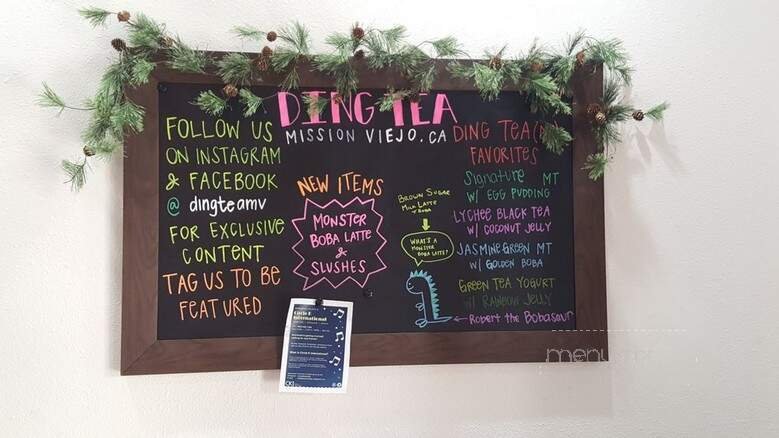 DING TEA
MISSION VIEJO, CA
FOLLOW US
ON INSTAGRAM
& FACEBOOK
@ dingteamv
FOR EXCLUSIVE
CONTENT
TAG US TO BE
FEATURED
NEW ITEMS
MONSTER
BOBA LATTE
&
SLUSHES
BROWN SUGAR
MILK LATTE
+ BOBA
WHAT'S A
MONSTER
BOBA LATTE?
DING TEA
FAVORITES
Signature MT
W/ EGG PUDDING
LYCHEE BLACK TEA
W/ COCONUT JELLY
JASMINE GREEN MT
W/ GOLDEN BOBA
GREEN TEA YOGURT
W/ RAINBOW JELLY
Robert the Bobasaur
Circle K
International
CKI
menu